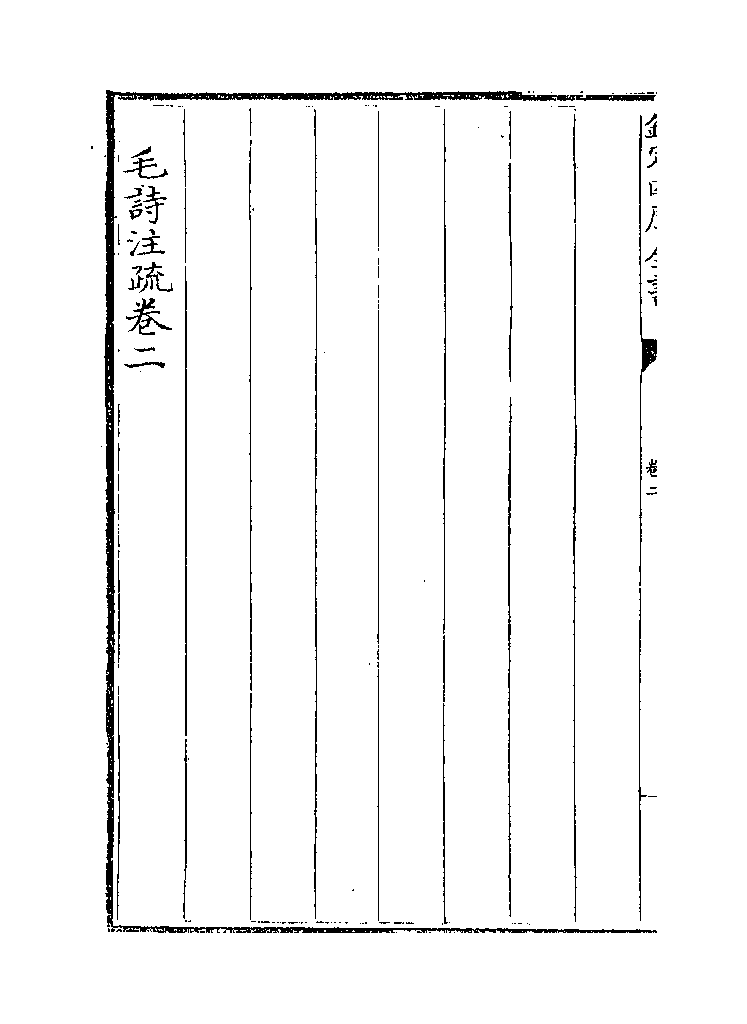 欽定四庫全書
卷二
毛詩注疏卷二